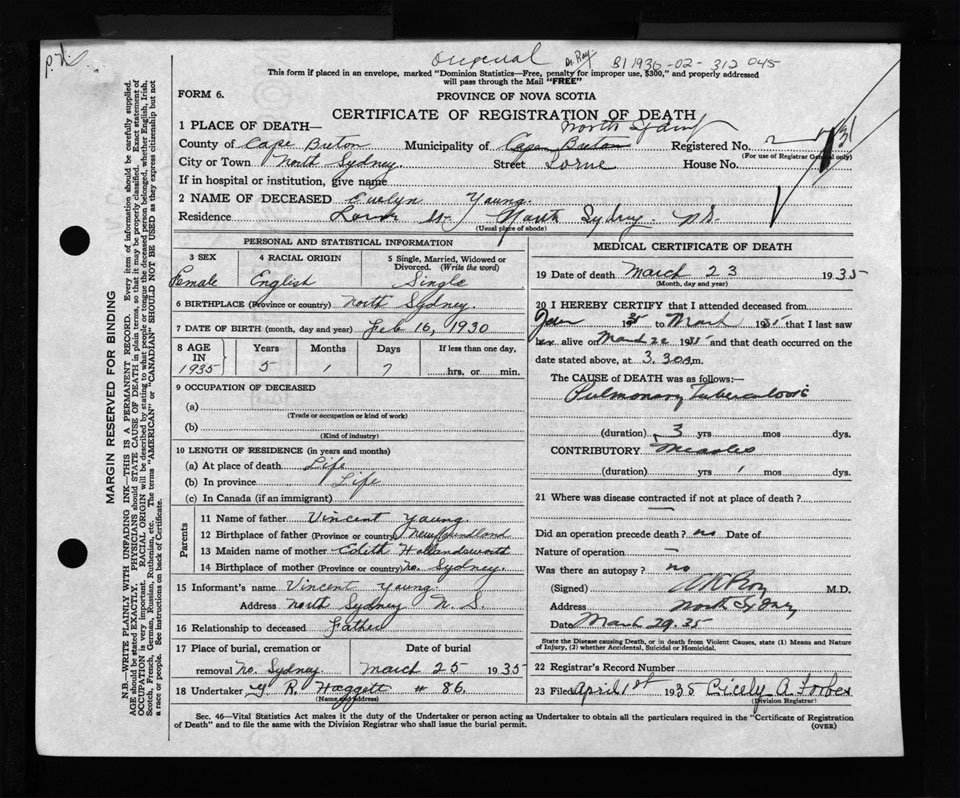 Original Dr. Roy B1 1936-02-312 045
This form if placed in an envelope, marked "Dominion Statistics—Free, penalty for improper use, $300," and properly addressed
will pass through the Mail "FREE"
FORM 6.
PROVINCE OF NOVA SCOTIA
CERTIFICATE OF REGISTRATION OF DEATH
1 PLACE OF DEATH— North Sydney
County of Cape Breton Municipality of Cape Breton Registered No.
(For use of Registrar General only)
City or Town North Sydney Street Lorne House No.
If in hospital or institution, give name
2 NAME OF DECEASED Evelyn Young.
Residence Lorne St. North Sydney N.S.
(Usual place of abode)
PERSONAL AND STATISTICAL INFORMATION
3 SEX 4 RACIAL ORIGIN 5 Single, Married, Widowed or Divorced. (Write the word)
Female English Single
6 BIRTHPLACE (Province or country) North Sydney.
7 DATE OF BIRTH (month, day and year) Feb 16, 1930
8 AGE IN Years Months Days If less than one day,
1935 5 1 7 hrs. or min.
9 OCCUPATION OF DECEASED
(a)
(Trade or occupation or kind of work)
(b)
(Kind of industry)
10 LENGTH OF RESIDENCE (in years and months)
(a) At place of death Life
(b) In province Life
(c) In Canada (if an immigrant)
Parents
11 Name of father Vincent Young.
12 Birthplace of father (Province or country) Newfoundland
13 Maiden name of mother Edith Hollandsworth
14 Birthplace of mother (Province or country) No. Sydney.
15 Informant's name Vincent Young.
Address North Sydney N.S.
16 Relationship to deceased Father
17 Place of burial, cremation or Date of burial
removal No. Sydney. March 25 1935
18 Undertaker G. R. Haggett # 86.
(Name and address)
MEDICAL CERTIFICATE OF DEATH
19 Date of death March 23 1935
(Month, day and year)
20 I HEREBY CERTIFY that I attended deceased from
Jan 1935 to March 1935 that I last saw
her alive on March 22 1935 and that death occurred on the
date stated above, at 3.30 a.m.
The CAUSE OF DEATH was as follows:
Pulmonary Tuberculosis
(duration) 3 yrs mos dys.
CONTRIBUTORY Measles
(duration) yrs 1 mos dys.
21 Where was disease contracted if not at place of death?
—
Did an operation precede death? no Date of
Nature of operation —
Was there an autopsy? no
(Signed) M.D.
Address North Sydney
Date March 29.35
State the Disease causing Death, or in death from Violent Causes, state (1) Means and Nature
of Injury, (2) whether Accidental, Suicidal or Homicidal.
22 Registrar's Record Number
23 Filed April 1st 1935 Cicely A. Forbes
(Division Registrar)
Sec. 46—Vital Statistics Act makes it the duty of the Undertaker or person acting as Undertaker to obtain all the particulars required in the "Certificate of Registration
of Death" and to file the same with the Division Registrar who shall issue the burial permit.
(OVER)
MARGIN RESERVED FOR BINDING
N.B.—WRITE PLAINLY WITH UNFADING INK—THIS IS A PERMANENT RECORD. Every item of information should be carefully supplied.
AGE should be stated EXACTLY. PHYSICIANS should STATE CAUSE OF DEATH in plain terms, so that it may be properly classified. Exact statement of
OCCUPATION is very important. RACIAL ORIGIN will be described by stating to what people or tongue the deceased person belonged, whether English, Irish,
Scotch, French, German, Russian, Ruthenian, etc. The terms "AMERICAN" or "CANADIAN" SHOULD NOT BE USED as they express citizenship but not
a race or people. See instructions on back of Certificate.